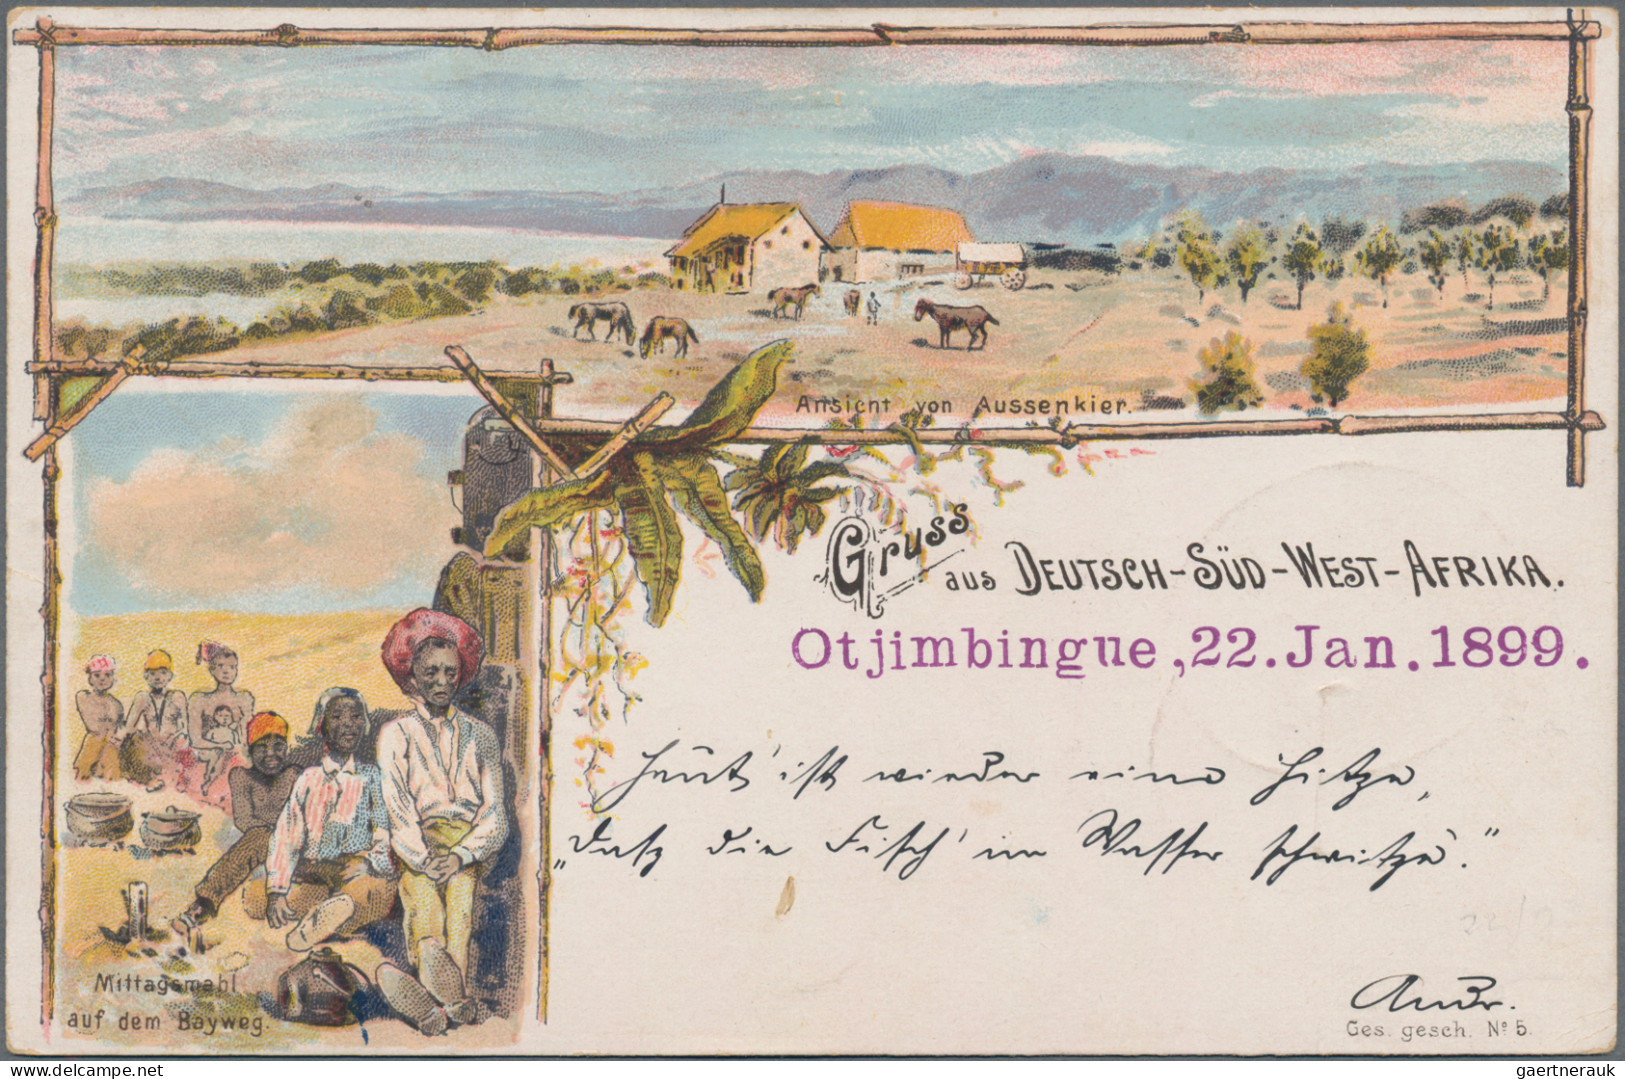 Ansicht von Aussenkier.
Gruss
aus DEUTSCH-SÜD-WEST-AFRIKA.
Otjimbingue, 22. Jan. 1899.
Heut' ist wieder eine Hitze,
„Dass die Fisch' im Wasser schwitze."
Mittagsmahl
auf dem Bayweg.
Ges. gesch. No 5.
delcampe.net
gaertnerauk